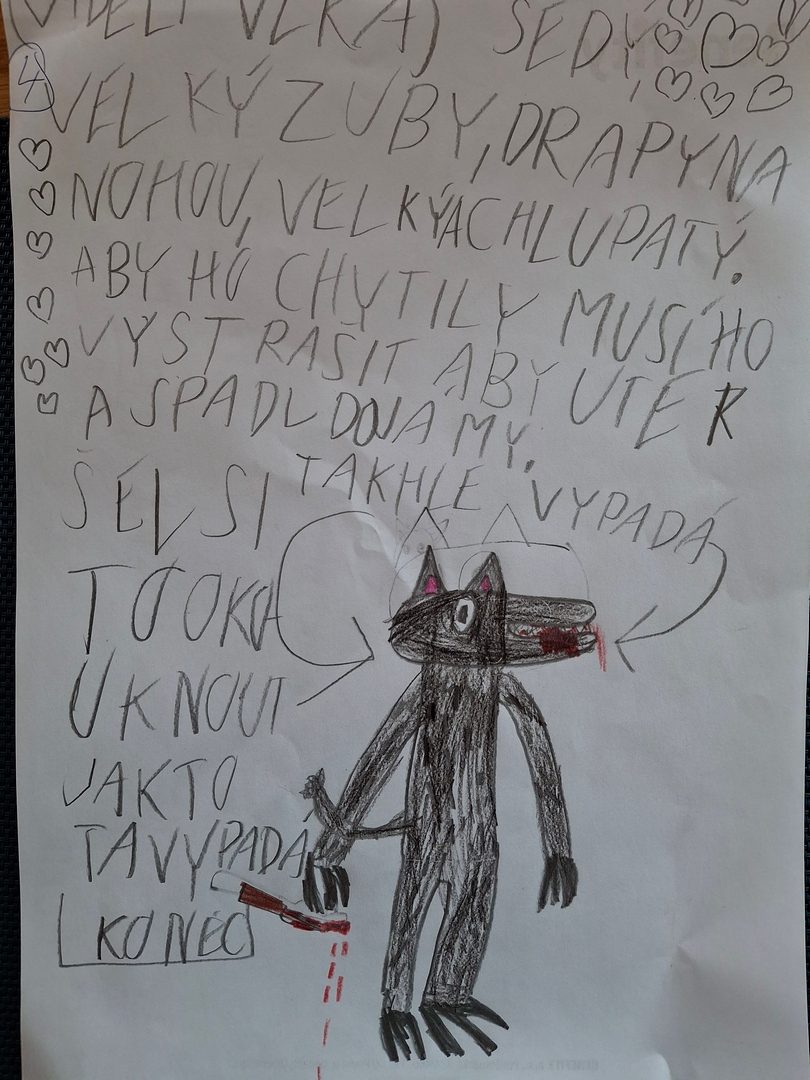 (VIDĚLI VLKA) ŠEDÝ,
4
VELKÝ ZUBY, DRAPY NA
NOHOU, VELKÝ A CHLUPATÝ.
ABY HO CHYTILY MUSÍ HO
VYSTRAŠIT ABY UTEK
A SPADL DO JAMY.
TAKHLE VYPADÁ
ŠEL SI
TO OKO
UKNOUT
JAK TO
TA VYPADÁ
KONEC